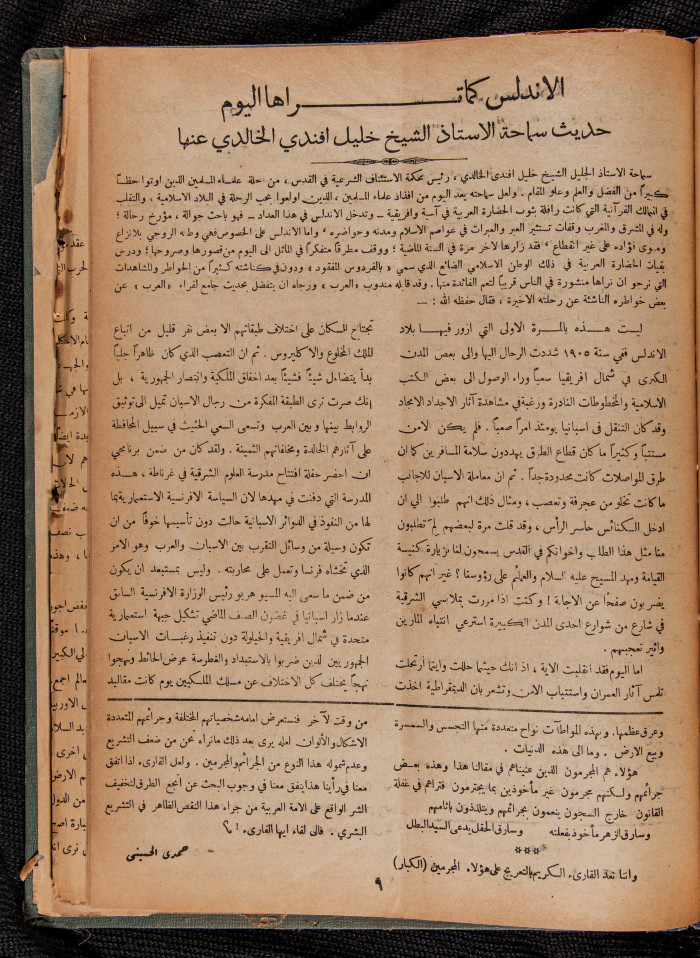 الاندلس كما تـــــراها اليوم
حديث سماحة الاستاذ الشيخ خليل افندي الخالدي عنها
سماحة الاستاذ الجليل الشيخ خليل افندي الخالدي ، رئيس محكمة الاستئناف الشرعية في القدس ، من جلة علماء المسلمين الذين اوتوا حظاً
كبيراً من الفضل والعلم وعلو المقام . ولعل سماحته يعد اليوم من افذاذ علماء المسلمين ، الذين اولعوا بحب الرحلة في البلاد الاسلامية ، والتقلب
في الممالك القرآنية التي كانت رافلة بثوب الحضارة العربية في آسية وافريقية ــ وتدخل الاندلس في هذا العداد ــ فهو باحث جوالة ، مؤرخ رحالة ؛
وله في المشرق والمغرب وقفات تستثير العبر والعبرات في عواصم الاسلام ومدنه وحواضره ، واما الاندلس على الخصوص فهي وطنه الروحي بلا نزاع
ومهوى فؤاده على غير انقطاع ، فقد زارها لآخر مرة في السنة الماضية ؛ ووقف مطرقاً متفكراً في الماثل الى اليوم من قصورها وصروحها ؛ ودرس
بقيات الحضارة العربية في ذلك الوطن الاسلامي الضائع الذي سمي «بالفردوس المفقود» ودون في كناشته كثيراً من الخواطر والمشاهدات
التي نرجو ان نراها منشورة في الناس قريباً لتعم الفائدة منها . وقد قابله مندوب «العرب» ورجاه ان يتفضل بحديث جامع لقراء «العرب» عن
بعض خواطره الناشئة عن رحلته الاخيرة ، فقال حفظه الله : ــ
ليست هـذه بالمـرة الاولى التي ازور فيهـا بلاد
الاندلس ففي سنة ١٩٠٥ شددت الرحال اليها والى بعض المدن
الكبرى في شمال افريقيا سعياً وراء الوصول الى بعض الكتب
الاسلامية والمخطوطات النادرة ورغبة في مشاهدة آثار الاجداد الامجاد
وقد كان التنقل في اسبانيا يومئذ امراً صعباً . فلم يكن الامن
مستتباً وكثيراً ما كان قطاع الطرق يهددون سلامة المسافرين كما ان
طرق المواصلات كانت محدودة جداً . ثم ان معاملة الاسبان للاجانب
ما كانت تخلو من عجرفة وتعصب ، ومثال ذلك انهم طلبوا الي ان
ادخل الكنائس حاسر الرأس ، وقد قلت مرة لبعضهم لم تطلبون
منا مثل هذا الطلب واخوانكم في القدس يسمحون لنا بزيارة كنيسة
القيامة ومهد المسيح عليه السلام والعمائم على رؤوسنا ؟ غير انهم كانوا
يضربون صفحاً عن الاجابة ! وكنت اذا مررت بملابسي الشرقية
في شارع من شوارع احدى المدن الكبيرة استرعي انتباه المارين
واثير تعجبهم .
اما اليوم فقد انقلبت الآية ، اذ انك حيثما حللت واينما ارتحلت
تلمس آثار العمران واستتباب الامن وتشعر بان الديمقراطية اخذت
تجتاح السكان على اختلاف طبقاتهم الا بعض نفر قليل من اتباع
الملك المخلوع والاكليروس . ثم ان التعصب الذي كان ظاهراً جلياً
بدأ يتضاءل شيئاً فشيئاً بعد اخفاق الملكية وانتصار الجمهورية ، بل
إنك صرت ترى الطبقة المفكرة من رجال الاسبان تميل الى توثيق
الروابط بينها وبين العرب وتسعى السعي الحثيث في سبيل المحافظة
على آثارهم الخالدة ومخلفاتهم الثمينة . ولقد كان من ضمن برنامجي
ان احضر حفلة افتتاح مدرسة العلوم الشرقية في غرناطة ، هـذه
المدرسة التي دفنت في مهدها لان السياسة الافرنسية الاستعمارية بما
لها من النفوذ في الدوائر الاسبانية حالت دون تأسيسها خوفاً من ان
تكون وسيلة من وسائل التقرب بين الاسبان والعرب وهو الامر
الذي تخشاه فرنسا وتعمل على محاربته . وليس بمستبعد ان يكون
من ضمن ما سعى اليه المسيو هريو رئيس الوزارة الافرنسية السابق
عندما زار اسبانيا في غضون الصف الماضي تشكيل جبهة استعمارية
متحدة في شمال افريقية والحيلولة دون تنفيذ رغبات الاسبان
الجمهوريين الذين ضربوا بالاستبداد والغطرسة عرض الحائط ونهجوا
نهجاً يختلف كل الاختلاف عن مسلك الملكيين يوم كانت مقاليد
وعرق عظمها . وبهذه المواطآت نواح متعددة منها التجسس والسمسرة
وبيع الارض . وما الى هذه الدنيات .
هؤلاء هم المجرمون الذين عنيناهم في مقالنا هذا وهذه بعض
جرائمهم ولكنهم مجرمون غير مأخوذين بما يجترمون فتراهم في غفلة
القانون خارج السجون ينعمون بجرائمهم ويتلذذون بآثامهم
وسارق الزهر مأخوذ بفعلته وسارق الحقل يدعى السيد البطل
***
واننا نعد القارىء الكريم بالتعريج على هؤلاء المجرمين (الكبار)
من وقت لآخر فنستعرض امامه شخصياتهم المختلفة وجرائمهم المتعددة
الاشكال والألوان لعله يرى بعد ذلك ما نراه نحن من ضعف التشريع
وعدم شموله هذا النوع من الجرائم والمجرمين . ولعل القارىء اذا اتفق
معنا في رأينا هذا ينفق معنا في وجوب البحث عن أنجع الطرق لتخفيف
الشر الواقع على الامة العربية من جراء هذا النقص الظاهر في التشريع
البشري . فالى لقاء ايها القارىء ! م؟
حمدي الحسيني
٩